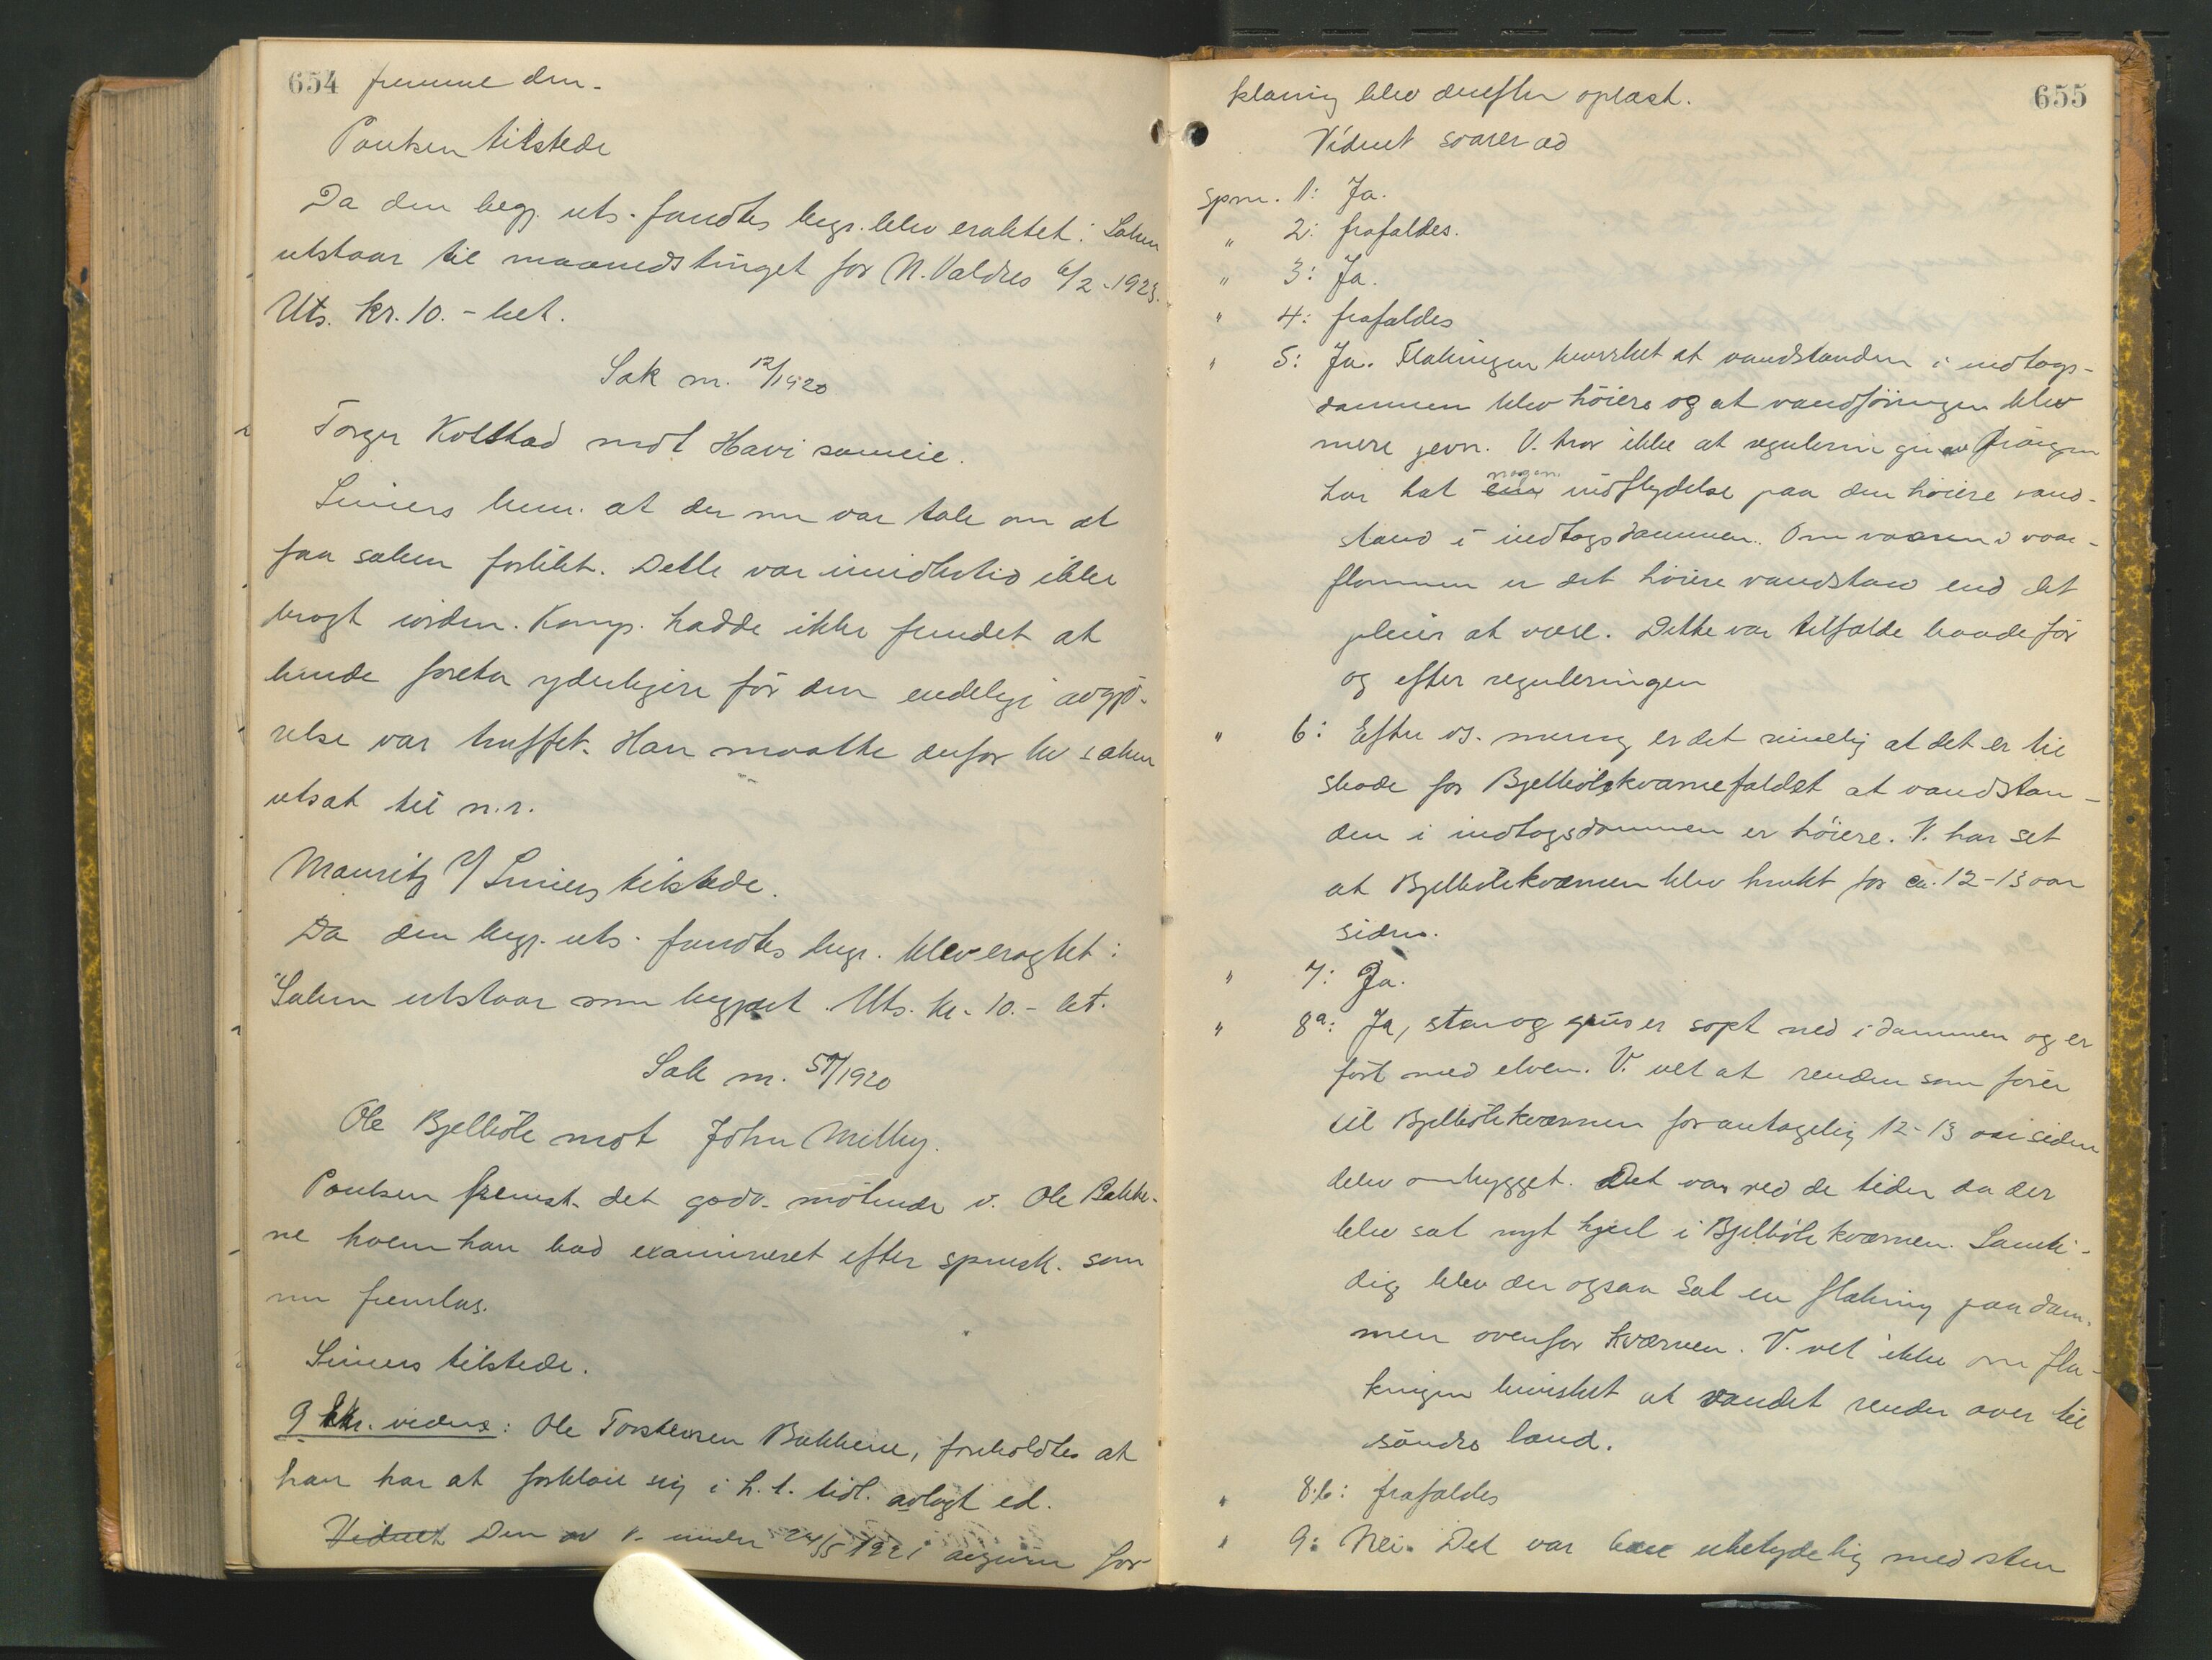 654 fremme den.
Poulsen tilstede
Da den begj. uts. fandtes begr. blev eraktet: Saken
utstaar til maanedstinget for N. Valdres 6/2-1923.
Uts. kr. 10.- bet.
Sak nr. 12/1920
Torger Kolstad mot Havi sameie.
Siniers bem. at der nu var tale om at
faa saken forlikt. Dette var imidlertid ikke
bragt iorden. Komp. hadde ikke fundet at
burde foreta yderligere för den endelige avgjö-
relse var truffet. Han maatte derfor be saken
utsat til n.r.
Mauritz f/ Siniers tilstede.
Da den begj. uts. fandtes begr. blev eragtet:
Saken utstaar som begjært. Uts. kr. 10.- bet.
Sak nr. 57/1920
Ole Bjelböle mot John Melby.
Poulsen fremst. det godv. mötende v. Ole Bakke-
ne hvem han bad examineret efter spmsk. som
nu fremlas.
Siniers tilstede.
9 vidne: Ole Torstensen Bakkene, foreholdtes at
han har at forklare sig i h. t. tidl. avlagt ed.
Vidnet Den av v. under 24/5 1921 avgivne for-
655
klaring blev derefter oplæst.
Vidnet svarer ad
Spm. 1: Ja.
" 2: frafaldes.
" 3: Ja.
" 4: frafaldes
" 5: Ja. Flakningen bevirket at vandstanden i indtags-
dammen blev höiere og at vandföringen blev
mere jevn. V. tror ikke at reguleringen av
har hat nogen indflydelse paa den höiere vand-
stand i indtagsdammen. Om vaaren i vaar-
flommen er det höiere vandstand end det
pleier at være. Dette var tilfælde baade för
og efter reguleringen
" 6: Efter vs. mening er det rimelig at det er til
skade for Bjelbölekvarnefaldet at vandstan-
den i indtagsdammen er höiere. V. har set
at Bjelbölekvernen blev brukt for ca. 12-13 aar
siden.
" 7: Ja.
" 8a: Ja, sten og grus er sopt ned i dammen og er
fört med elven. V. vet at renden som förer
til Bjelbölekvernen for antagelig 12-13 aar siden
blev ombygget. Det var ved de tider da der
blev sat nyt hjul i Bjelböle kværnen. Samti-
dig blev der ogsaa sat en flakning paa dam-
men ovenfor kværnen. V. vet ikke om fla-
kningen bevirket at vandet render over til
söndre land.
" 8.b: frafaldes
" 9: Nei. Det var bare ubetydelig med sten